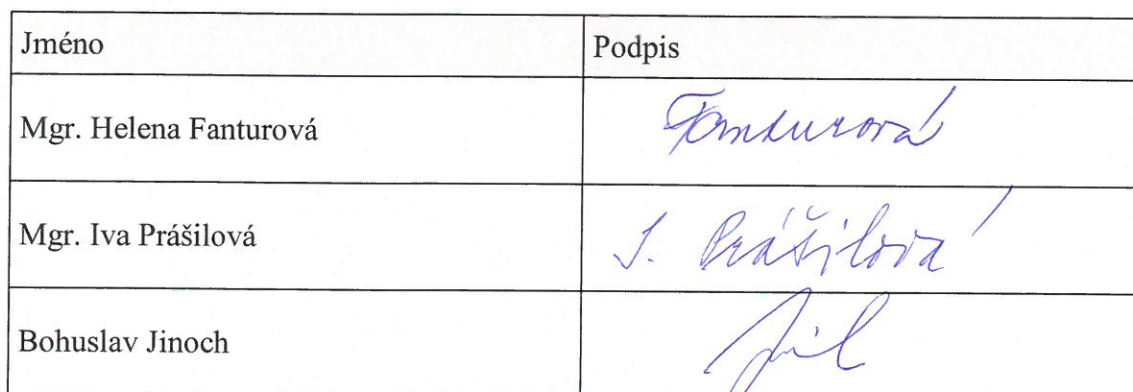 Jméno Podpis
Mgr. Helena Fanturová Fanturová
Mgr. Iva Prášilová I. Prášilová
Bohuslav Jinoch